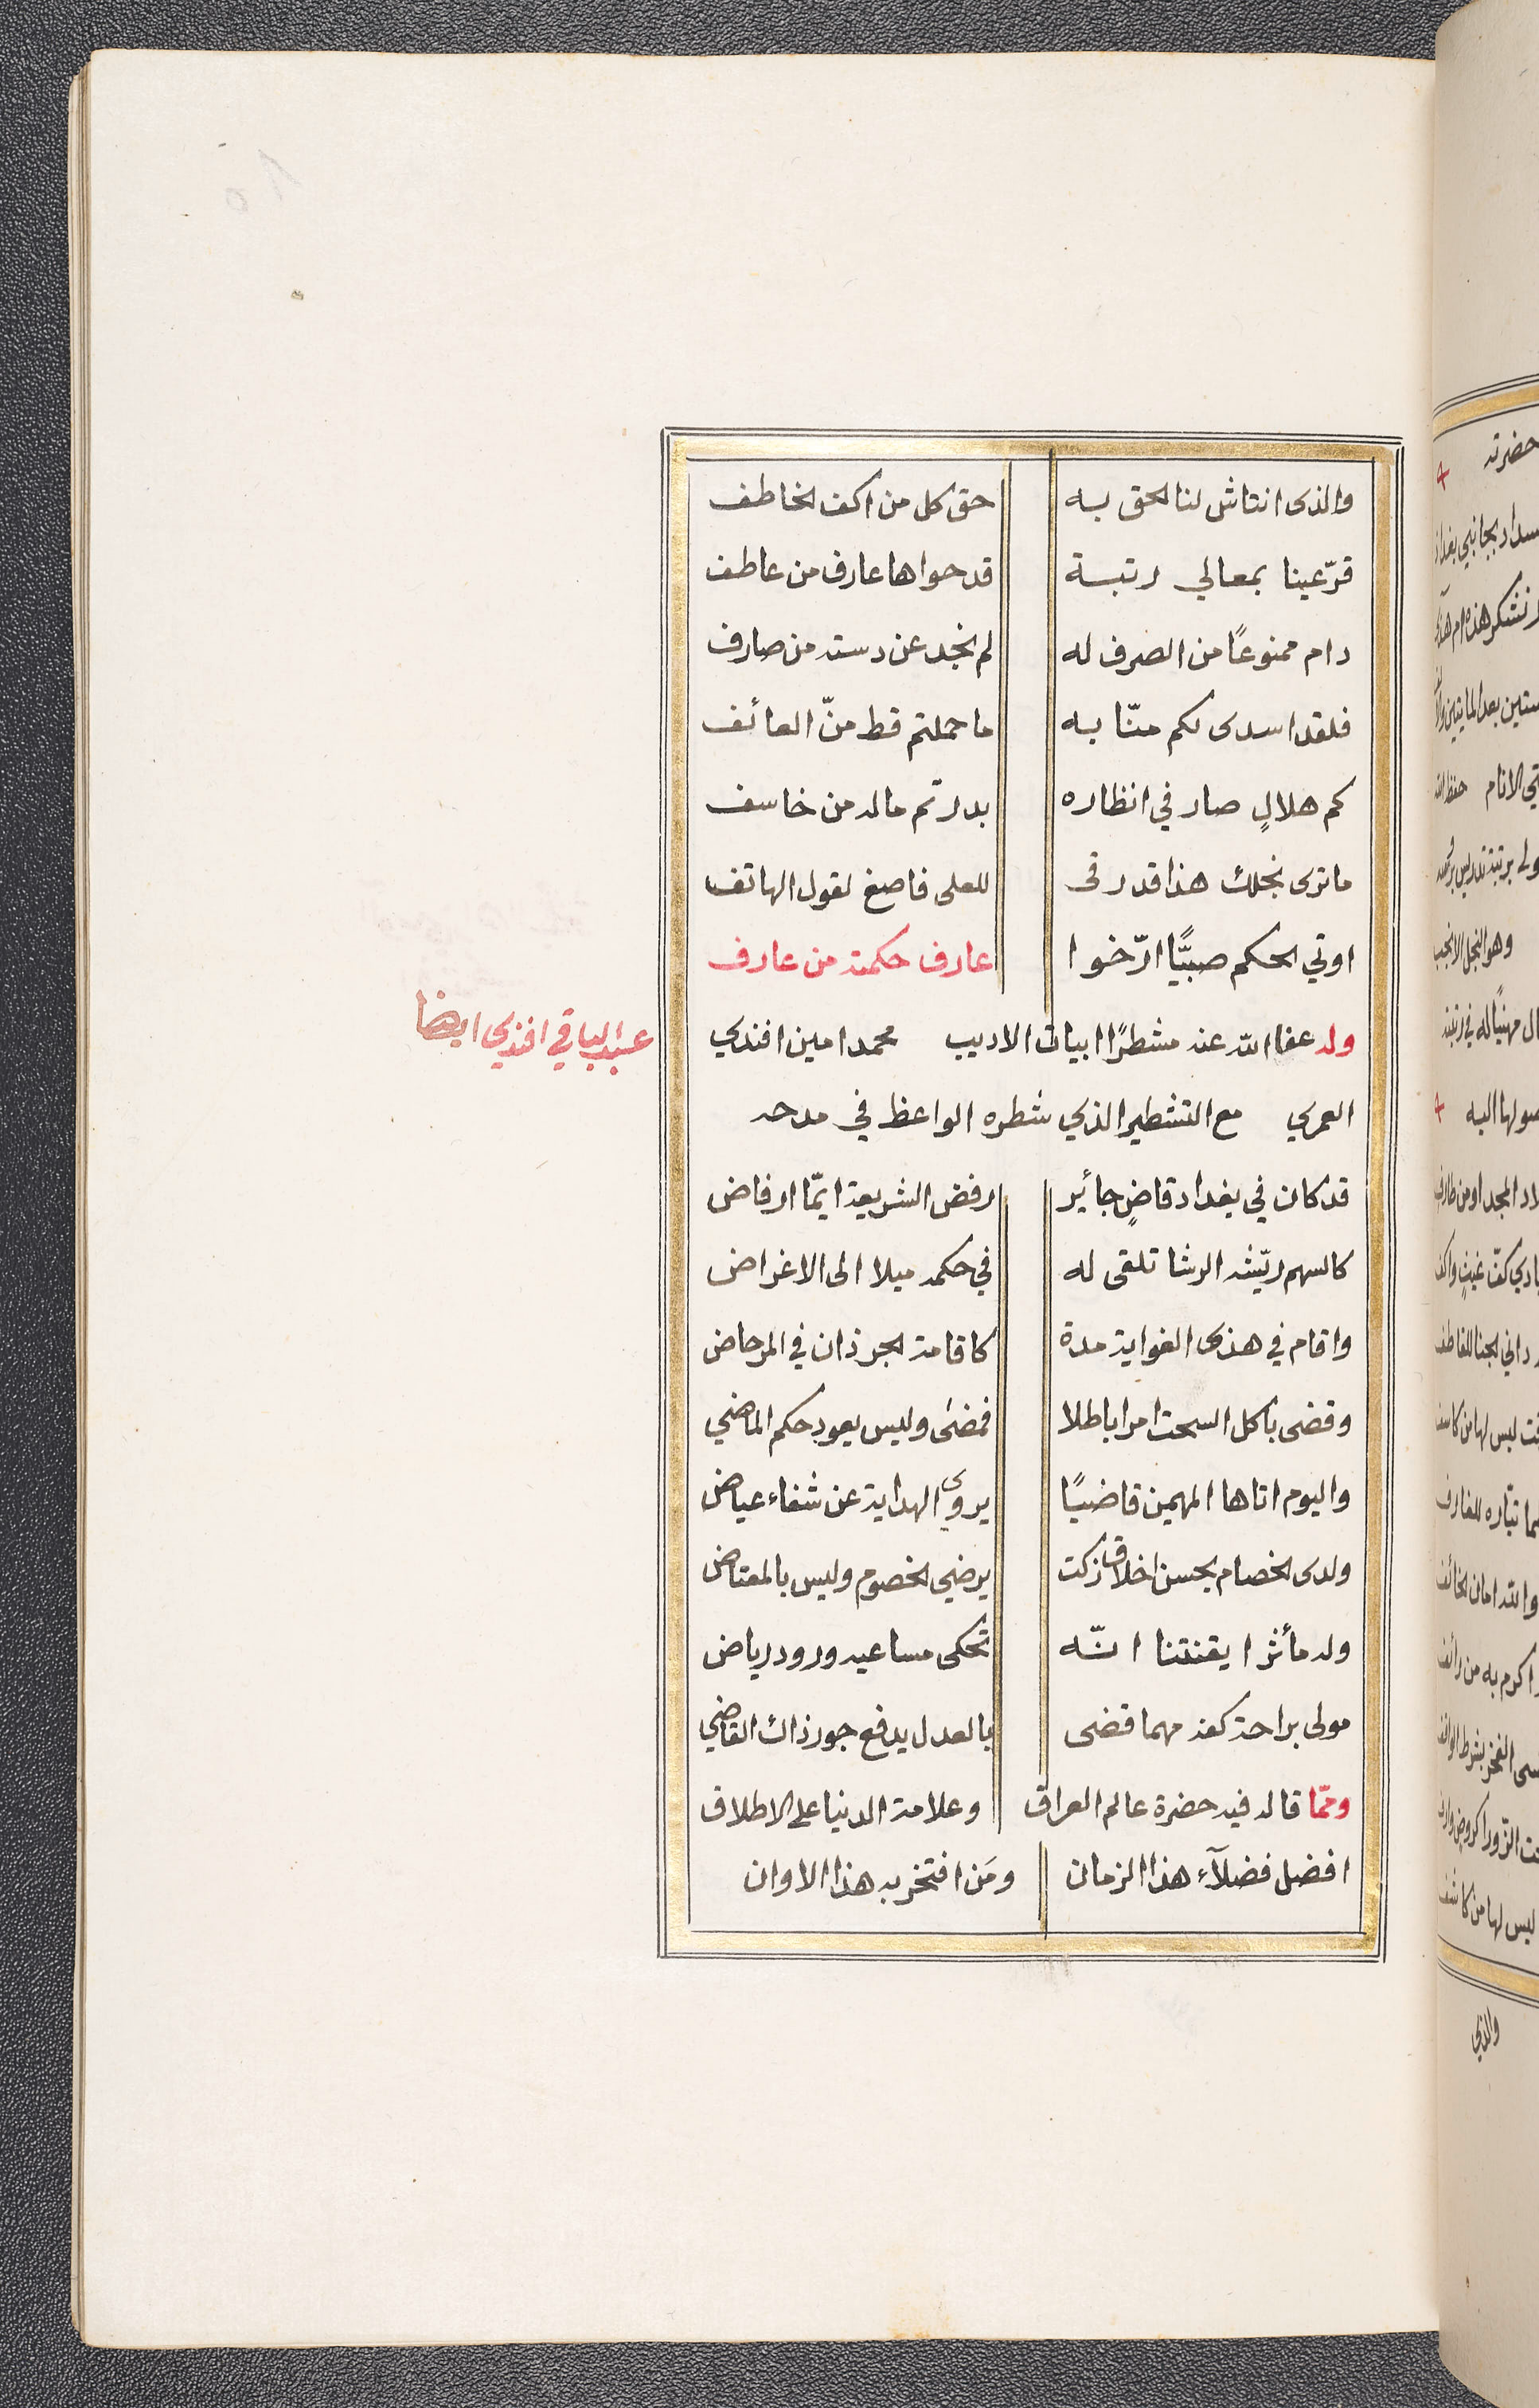 والذى انتاش لنا الحق به حق كل من اكف الخاطف
قرّ عينا بمعالي رتبة قد حواها عارف من عاطف
دام ممنوعًا من الصرف له لم نجد عن دسته من صارف
فلقد اسدى لكم منّا به ما حملتم قط منّ العائف
كم هلالٍ صار في انظاره بدر تم ماله من خاسف
ما ترى نجلك هذا قد رقى للعلى فاصغ لقول الهاتف
اوتي الحكم صبيًّا ارّخوا عارف حكمته من عارف
وله عفا الله عنه مشطرًا ابيات الاديب محمد امين افندي
عبد الباقي افندي ايضا
العمري مع التشطير الذي شطره الواعظ في مدحه
قد كان في بغداد قاضٍ جائير رفض الشريعة ايمّا ارفاض
كالسهم ريّشه الرشا تلقى له في حكمه ميلا الى الاغراض
واقام في هذى الغواية مدة كاقامة الجرذان في المرحاض
وقضى باكل السحت امرا باطلا فمضى وليس يعود حكم الماضي
واليوم اتاها المهيمن قاضيًا يروى الهداية عن شفاء عياض
ولدى الخصام بحسن اخلاق زكت يرضي الخصوم وليس بالمعتاض
وله مأثر ايقنتنا انّه تحكى مساعيه ورود رياض
مولى براحة كفه مهما قضى بالعدل يدفع جور ذاك القاضي
وممّا قاله فيه حضرة عالم العراق وعلامة الدنيا على الاطلاق
افضل فضلآء هذا الزمان ومَن افتخر به هذا الاوان